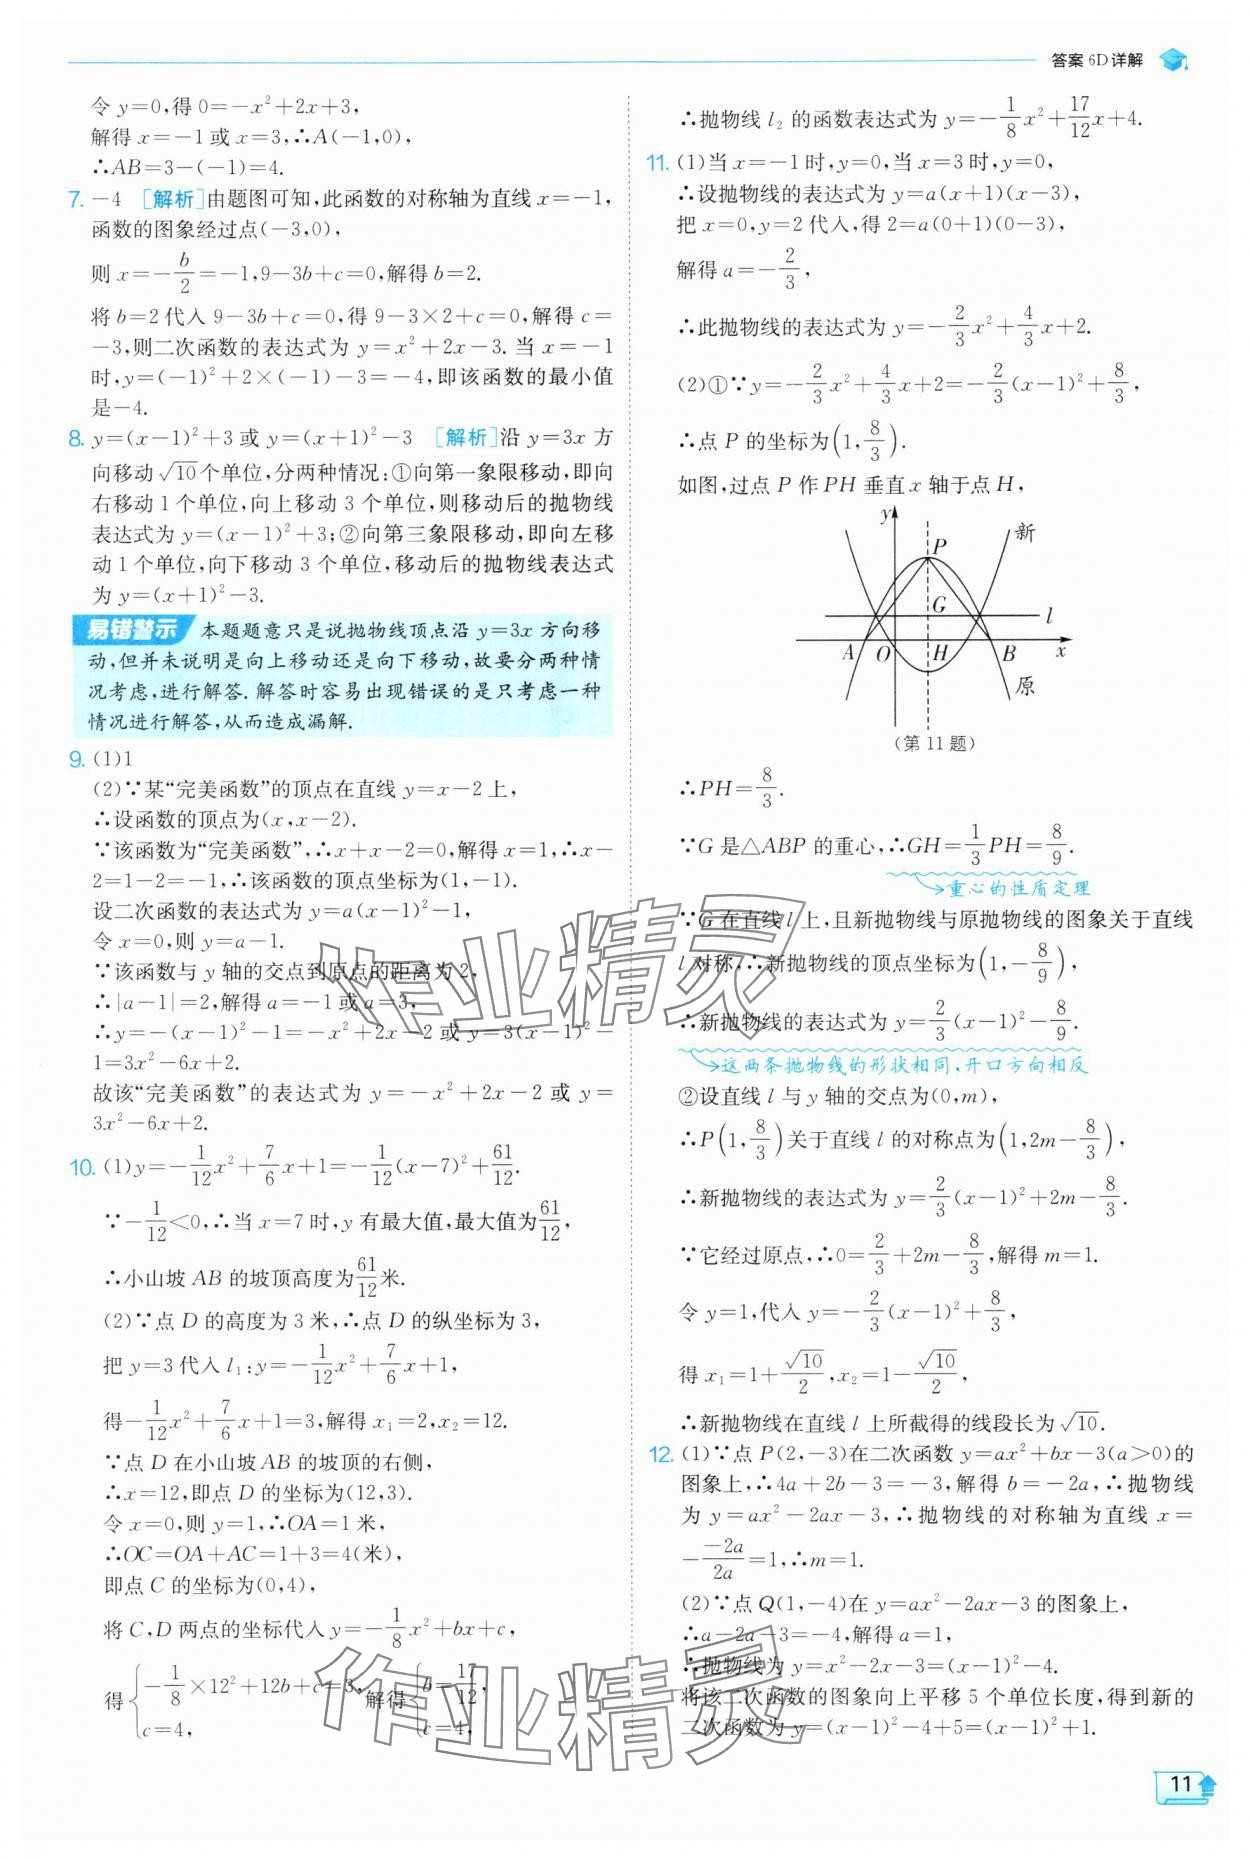 答案 6D详解
令 y=0,得 0=-x²+2x+3,
解得 x=-1 或 x=3,∴A(-1,0),
∴AB=3-(-1)=4.
7. -4 [解析]由题图可知,此函数的对称轴为直线 x=-1,
函数的图象经过点(-3,0),
则 x=-b/2=-1,9-3b+c=0,解得 b=2.
将 b=2 代入 9-3b+c=0,得 9-3×2+c=0,解得 c=
-3,则二次函数的表达式为 y=x²+2x-3. 当 x=-1
时,y=(-1)²+2×(-1)-3=-4,即该函数的最小值
是-4.
8. y=(x-1)²+3 或 y=(x+1)²-3 [解析]沿 y=3x 方
向移动√10个单位,分两种情况:①向第一象限移动,即向
右移动 1 个单位,向上移动 3 个单位,则移动后的抛物线
表达式为 y=(x-1)²+3;②向第三象限移动,即向左移
动 1 个单位,向下移动 3 个单位,移动后的抛物线表达式
为 y=(x+1)²-3.
易错警示 本题题意只是说抛物线顶点沿 y=3x 方向移
动,但并未说明是向上移动还是向下移动,故要分两种情
况考虑,进行解答. 解答时容易出现错误的是只考虑一种
情况进行解答,从而造成漏解.
9. (1)1
(2)∵某“完美函数”的顶点在直线 y=x-2 上,
∴设函数的顶点为(x,x-2).
∵该函数为“完美函数”,∴x+x-2=0,解得 x=1,∴x-
2=1-2=-1,∴该函数的顶点坐标为(1,-1).
设二次函数的表达式为 y=a(x-1)²-1,
令 x=0,则 y=a-1.
∵该函数与 y 轴的交点到原点的距离为 2,
∴|a-1|=2,解得 a=-1 或 a=3,
∴y=-(x-1)²-1=-x²+2x-2 或 y=3(x-1)²-
1=3x²-6x+2.
故该“完美函数”的表达式为 y=-x²+2x-2 或 y=
3x²-6x+2.
10. (1)y=-1/12x²+7/6x+1=-1/12(x-7)²+61/12.
∵-1/12<0,∴当 x=7 时,y 有最大值,最大值为61/12,
∴小山坡 AB 的坡顶高度为61/12米.
(2)∵点 D 的高度为 3 米,∴点 D 的纵坐标为 3,
把 y=3 代入 l₁:y=-1/12x²+7/6x+1,
得-1/12x²+7/6x+1=3,解得 x₁=2,x₂=12.
∵点 D 在小山坡 AB 的坡顶的右侧,
∴x=12,即点 D 的坐标为(12,3).
令 x=0,则 y=1,∴OA=1 米,
∴OC=OA+AC=1+3=4(米),
即点 C 的坐标为(0,4),
将 C,D 两点的坐标代入 y=-1/8x²+bx+c,
得{-1/8×12²+12b+c=3, c=4, 解得{b=17/12, c=4,
∴抛物线 l₂ 的函数表达式为 y=-1/8x²+17/12x+4.
11. (1)当 x=-1 时,y=0,当 x=3 时,y=0,
∴设抛物线的表达式为 y=a(x+1)(x-3),
把 x=0,y=2 代入,得 2=a(0+1)(0-3),
解得 a=-2/3,
∴此抛物线的表达式为 y=-2/3x²+4/3x+2.
(2)①∵y=-2/3x²+4/3x+2=-2/3(x-1)²+8/3,
∴点 P 的坐标为(1,8/3).
如图,过点 P 作 PH 垂直 x 轴于点 H,
y
新
P
G
l
A O H B x
原
(第 11 题)
∴PH=8/3.
∵G 是△ABP 的重心,∴GH=1/3PH=8/9.
重心的性质定理
∵G 在直线 l 上,且新抛物线与原抛物线的图象关于直线
l 对称,∴新抛物线的顶点坐标为(1,-8/9),
∴新抛物线的表达式为 y=2/3(x-1)²-8/9.
这两条抛物线的形状相同,开口方向相反
②设直线 l 与 y 轴的交点为(0,m),
∴P(1,8/3)关于直线 l 的对称点为(1,2m-8/3),
∴新抛物线的表达式为 y=2/3(x-1)²+2m-8/3.
∵它经过原点,∴0=2/3+2m-8/3,解得 m=1.
令 y=1,代入 y=-2/3(x-1)²+8/3,
得 x₁=1+√10/2,x₂=1-√10/2,
∴新抛物线在直线 l 上所截得的线段长为√10.
12. (1)∵点 P(2,-3)在二次函数 y=ax²+bx-3(a>0)的
图象上,∴4a+2b-3=-3,解得 b=-2a,∴抛物线
为 y=ax²-2ax-3,∴抛物线的对称轴为直线 x=
- -2a/2a=1,∴m=1.
(2)∵点 Q(1,-4)在 y=ax²-2ax-3 的图象上,
∴a-2a-3=-4,解得 a=1,
∴抛物线为 y=x²-2x-3=(x-1)²-4.
将该二次函数的图象向上平移 5 个单位长度,得到新的
二次函数为 y=(x-1)²-4+5=(x-1)²+1.
作业精灵
作业精灵
11